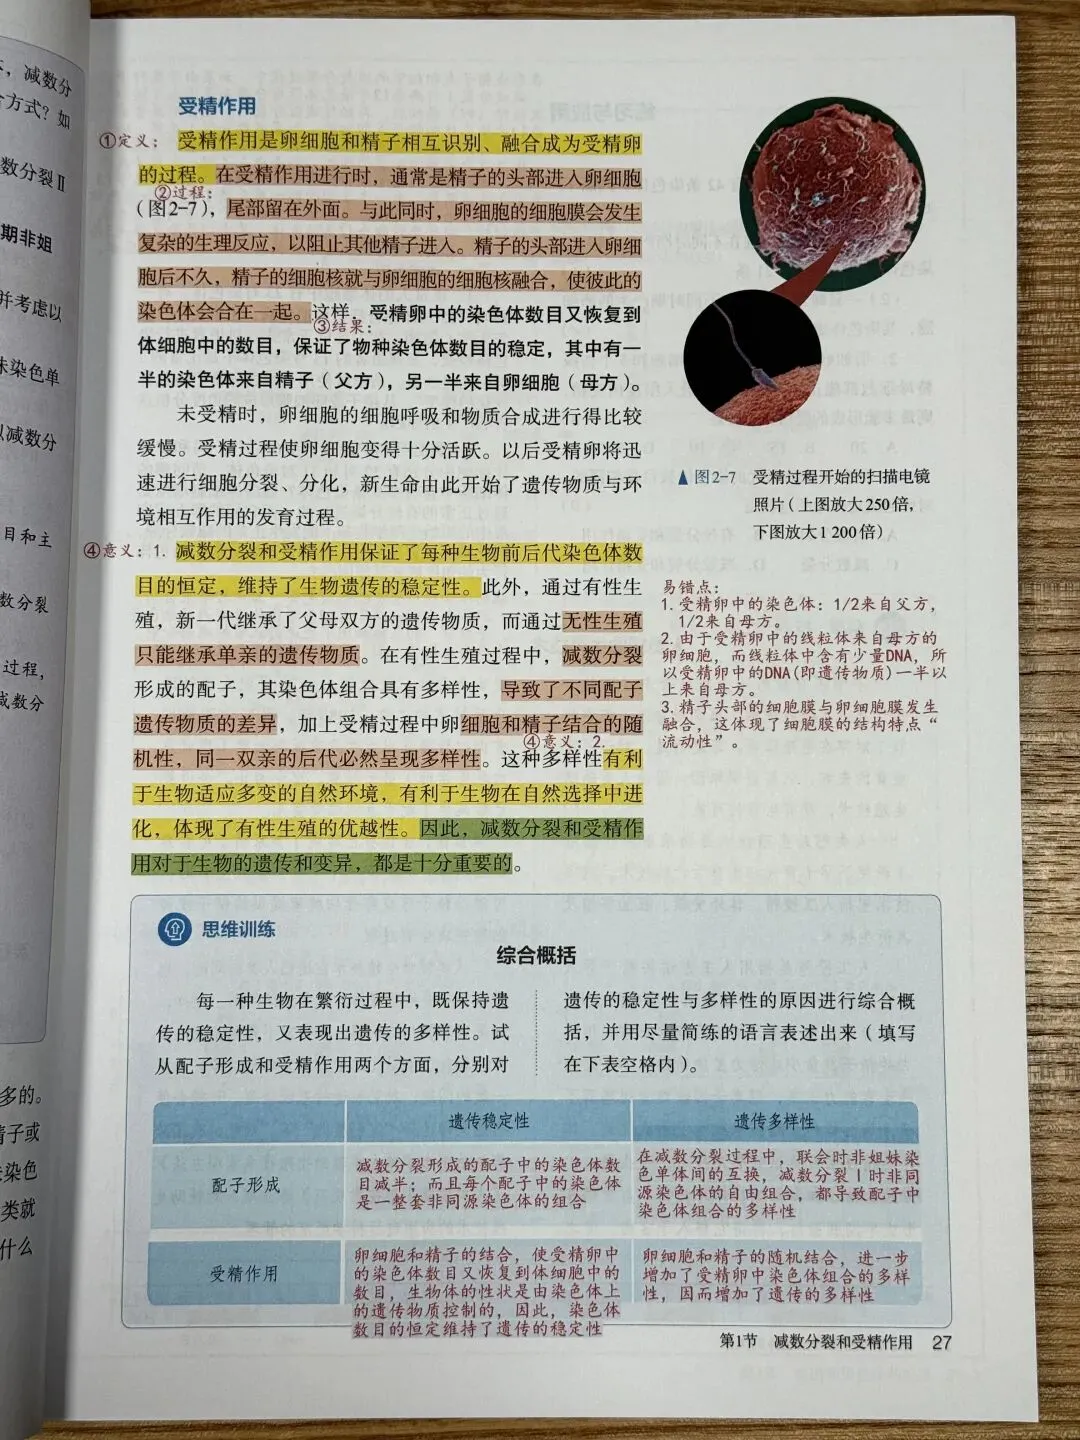 本，减数分
合方式？如
数分裂Ⅱ
期非姐
并考虑以
妹染色单
以减数分
目和主
数分裂
过程，
减数分
多的。
精子或
染色
类就
什么
受精作用
①定义：受精作用是卵细胞和精子相互识别、融合成为受精卵
的过程。在受精作用进行时，通常是精子的头部进入卵细胞
②过程：
（图2-7），尾部留在外面。与此同时，卵细胞的细胞膜会发生
复杂的生理反应，以阻止其他精子进入。精子的头部进入卵细
胞后不久，精子的细胞核就与卵细胞的细胞核融合，使彼此的
染色体会合在一起。这样，受精卵中的染色体数目又恢复到
③结果：
体细胞中的数目，保证了物种染色体数目的稳定，其中有一
半的染色体来自精子（父方），另一半来自卵细胞（母方）。
未受精时，卵细胞的细胞呼吸和物质合成进行得比较
缓慢。受精过程使卵细胞变得十分活跃。以后受精卵将迅
速进行细胞分裂、分化，新生命由此开始了遗传物质与环
境相互作用的发育过程。
④意义：1. 减数分裂和受精作用保证了每种生物前后代染色体数
目的恒定，维持了生物遗传的稳定性。此外，通过有性生
殖，新一代继承了父母双方的遗传物质，而通过无性生殖
只能继承单亲的遗传物质。在有性生殖过程中，减数分裂
形成的配子，其染色体组合具有多样性，导致了不同配子
遗传物质的差异，加上受精过程中卵细胞和精子结合的随
④意义：2.
机性，同一双亲的后代必然呈现多样性。这种多样性有利
于生物适应多变的自然环境，有利于生物在自然选择中进
化，体现了有性生殖的优越性。因此，减数分裂和受精作
用对于生物的遗传和变异，都是十分重要的。
▲图2-7 受精过程开始的扫描电镜
照片（上图放大250倍，
下图放大1 200倍）
易错点：
1. 受精卵中的染色体：1/2来自父方，
1/2来自母方。
2. 由于受精卵中的线粒体来自母方的
卵细胞，而线粒体中含有少量DNA，所
以受精卵中的DNA(即遗传物质)一半以
上来自母方。
3. 精子头部的细胞膜与卵细胞膜发生
融合，这体现了细胞膜的结构特点“
流动性”。
思维训练
综合概括
每一种生物在繁衍过程中，既保持遗
传的稳定性，又表现出遗传的多样性。试
从配子形成和受精作用两个方面，分别对
遗传的稳定性与多样性的原因进行综合概
括，并用尽量简练的语言表述出来（填写
在下表空格内）。
遗传稳定性 遗传多样性
配子形成
减数分裂形成的配子中的染色体数
目减半；而且每个配子中的染色体
是一整套非同源染色体的组合
在减数分裂过程中，联会时非姐妹染
色单体间的互换，减数分裂Ⅰ时非同
源染色体的自由组合，都导致配子中
染色体组合的多样性
受精作用
卵细胞和精子的结合，使受精卵中
的染色体数目又恢复到体细胞中的
数目，生物体的性状是由染色体上
的遗传物质控制的，因此，染色体
数目的恒定维持了遗传的稳定性
卵细胞和精子的随机结合，进一步
增加了受精卵中染色体组合的多样
性，因而增加了遗传的多样性
第1节 减数分裂和受精作用 27